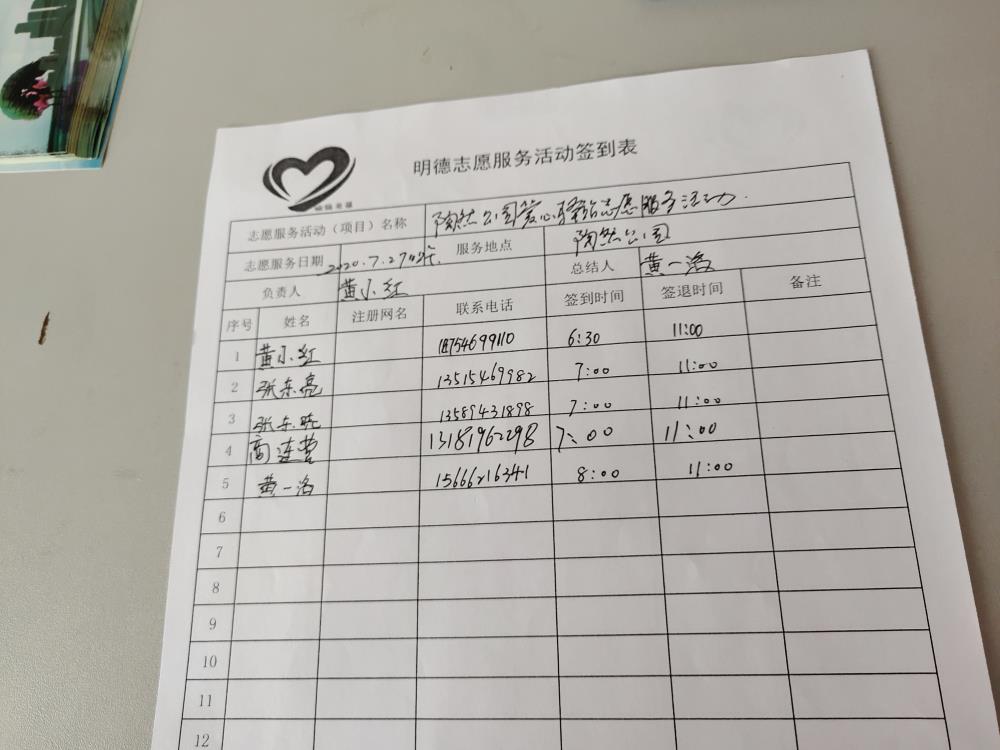 明德志愿服务活动签到表
志愿服务活动（项目）名称 陶然公园爱心驿站志愿服务活动.
志愿服务日期 2020.7.27 服务地点 陶然公园
负责人 黄小红 总结人 黄一洛
序号 姓名 注册网名 联系电话 签到时间 签退时间 备注
1 黄小红 18754699110 6:30 11:00
2 张东亮 13515469982 7:00 11:00
3 张东晓 13589431898 7:00 11:00
4 高连营 13181962298 7:00 11:00
5 黄一洛 15666216341 8:00 11:00
6
7
8
9
10
11
12